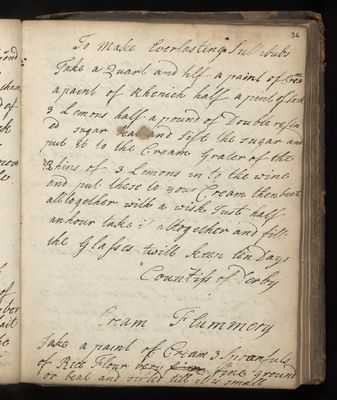 36
To Make Everlasting Sullibubs
Take a Quart and hlf a paint of Crem
a paint of Rhenish half a pint of Sack
3 Lemons half a pound of Double refin
ed sugar beat and sift the sugar and
put it to the Cream Grater of the
Rhins of 3 Lemons in to the wine
and put these to your Cream then beat
alltogether with a wisk Just half
an hour take it altogether and fill
the Glasses twill keep ten Days
Countiss of Derby
Cream Flummery
Take a paint of Cream 3
of Rice Flour very fine ground
or beat and sifted till it is small